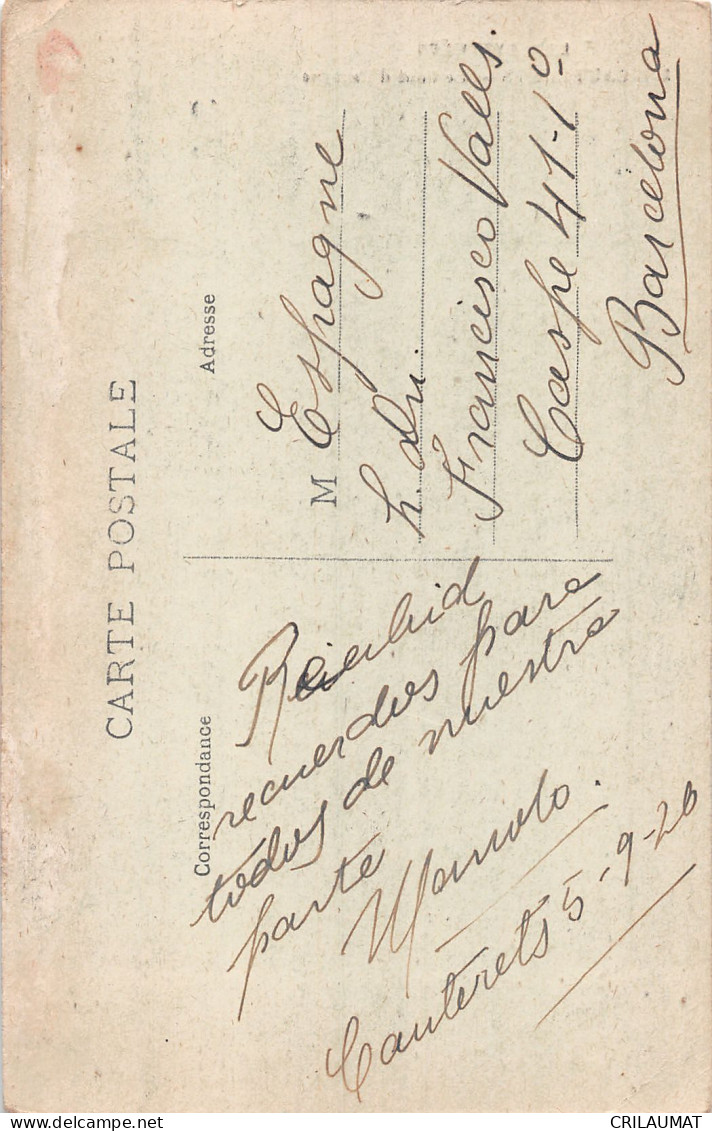 CARTE POSTALE
Correspondance
Recibid
recuerdos para
todos de nuestra
parte
Manolo.
Cauterets 5-9-26
Adresse
M Espagne
Francisco Valls.
Caspe 41-1º
Barcelona
CRILAUMAT